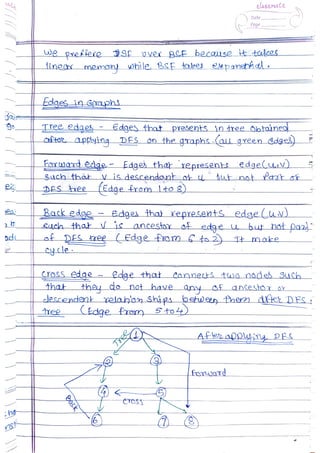 classmate
Date
Page
We preffere DSF over BSF because it takes
linear memory while BSF takes exponential.
Edges in Graphs
Tree edges - Edges that presents in tree obtained
after applying DFS on the graphs (all green edges)
Forward edge - Edges that represents edge(u,v)
such that v is descendant of u but not part of
DFS tree (Edge from 1 to 8)
Back edge - Edges that represents edge (u,v)
such that v is ancestor of edge u but not part
of DFS tree (Edge from 6 to 2) It make
cycle.
Cross edge - edge that connects two nodes such
that they do not have any of ancestor or
descendent relation ships between them after DFS
tree (Edge from 5 to 4)
After applying DFS
1
Tree
2
3
Forward
4
5
Cross
Back
6
7
8